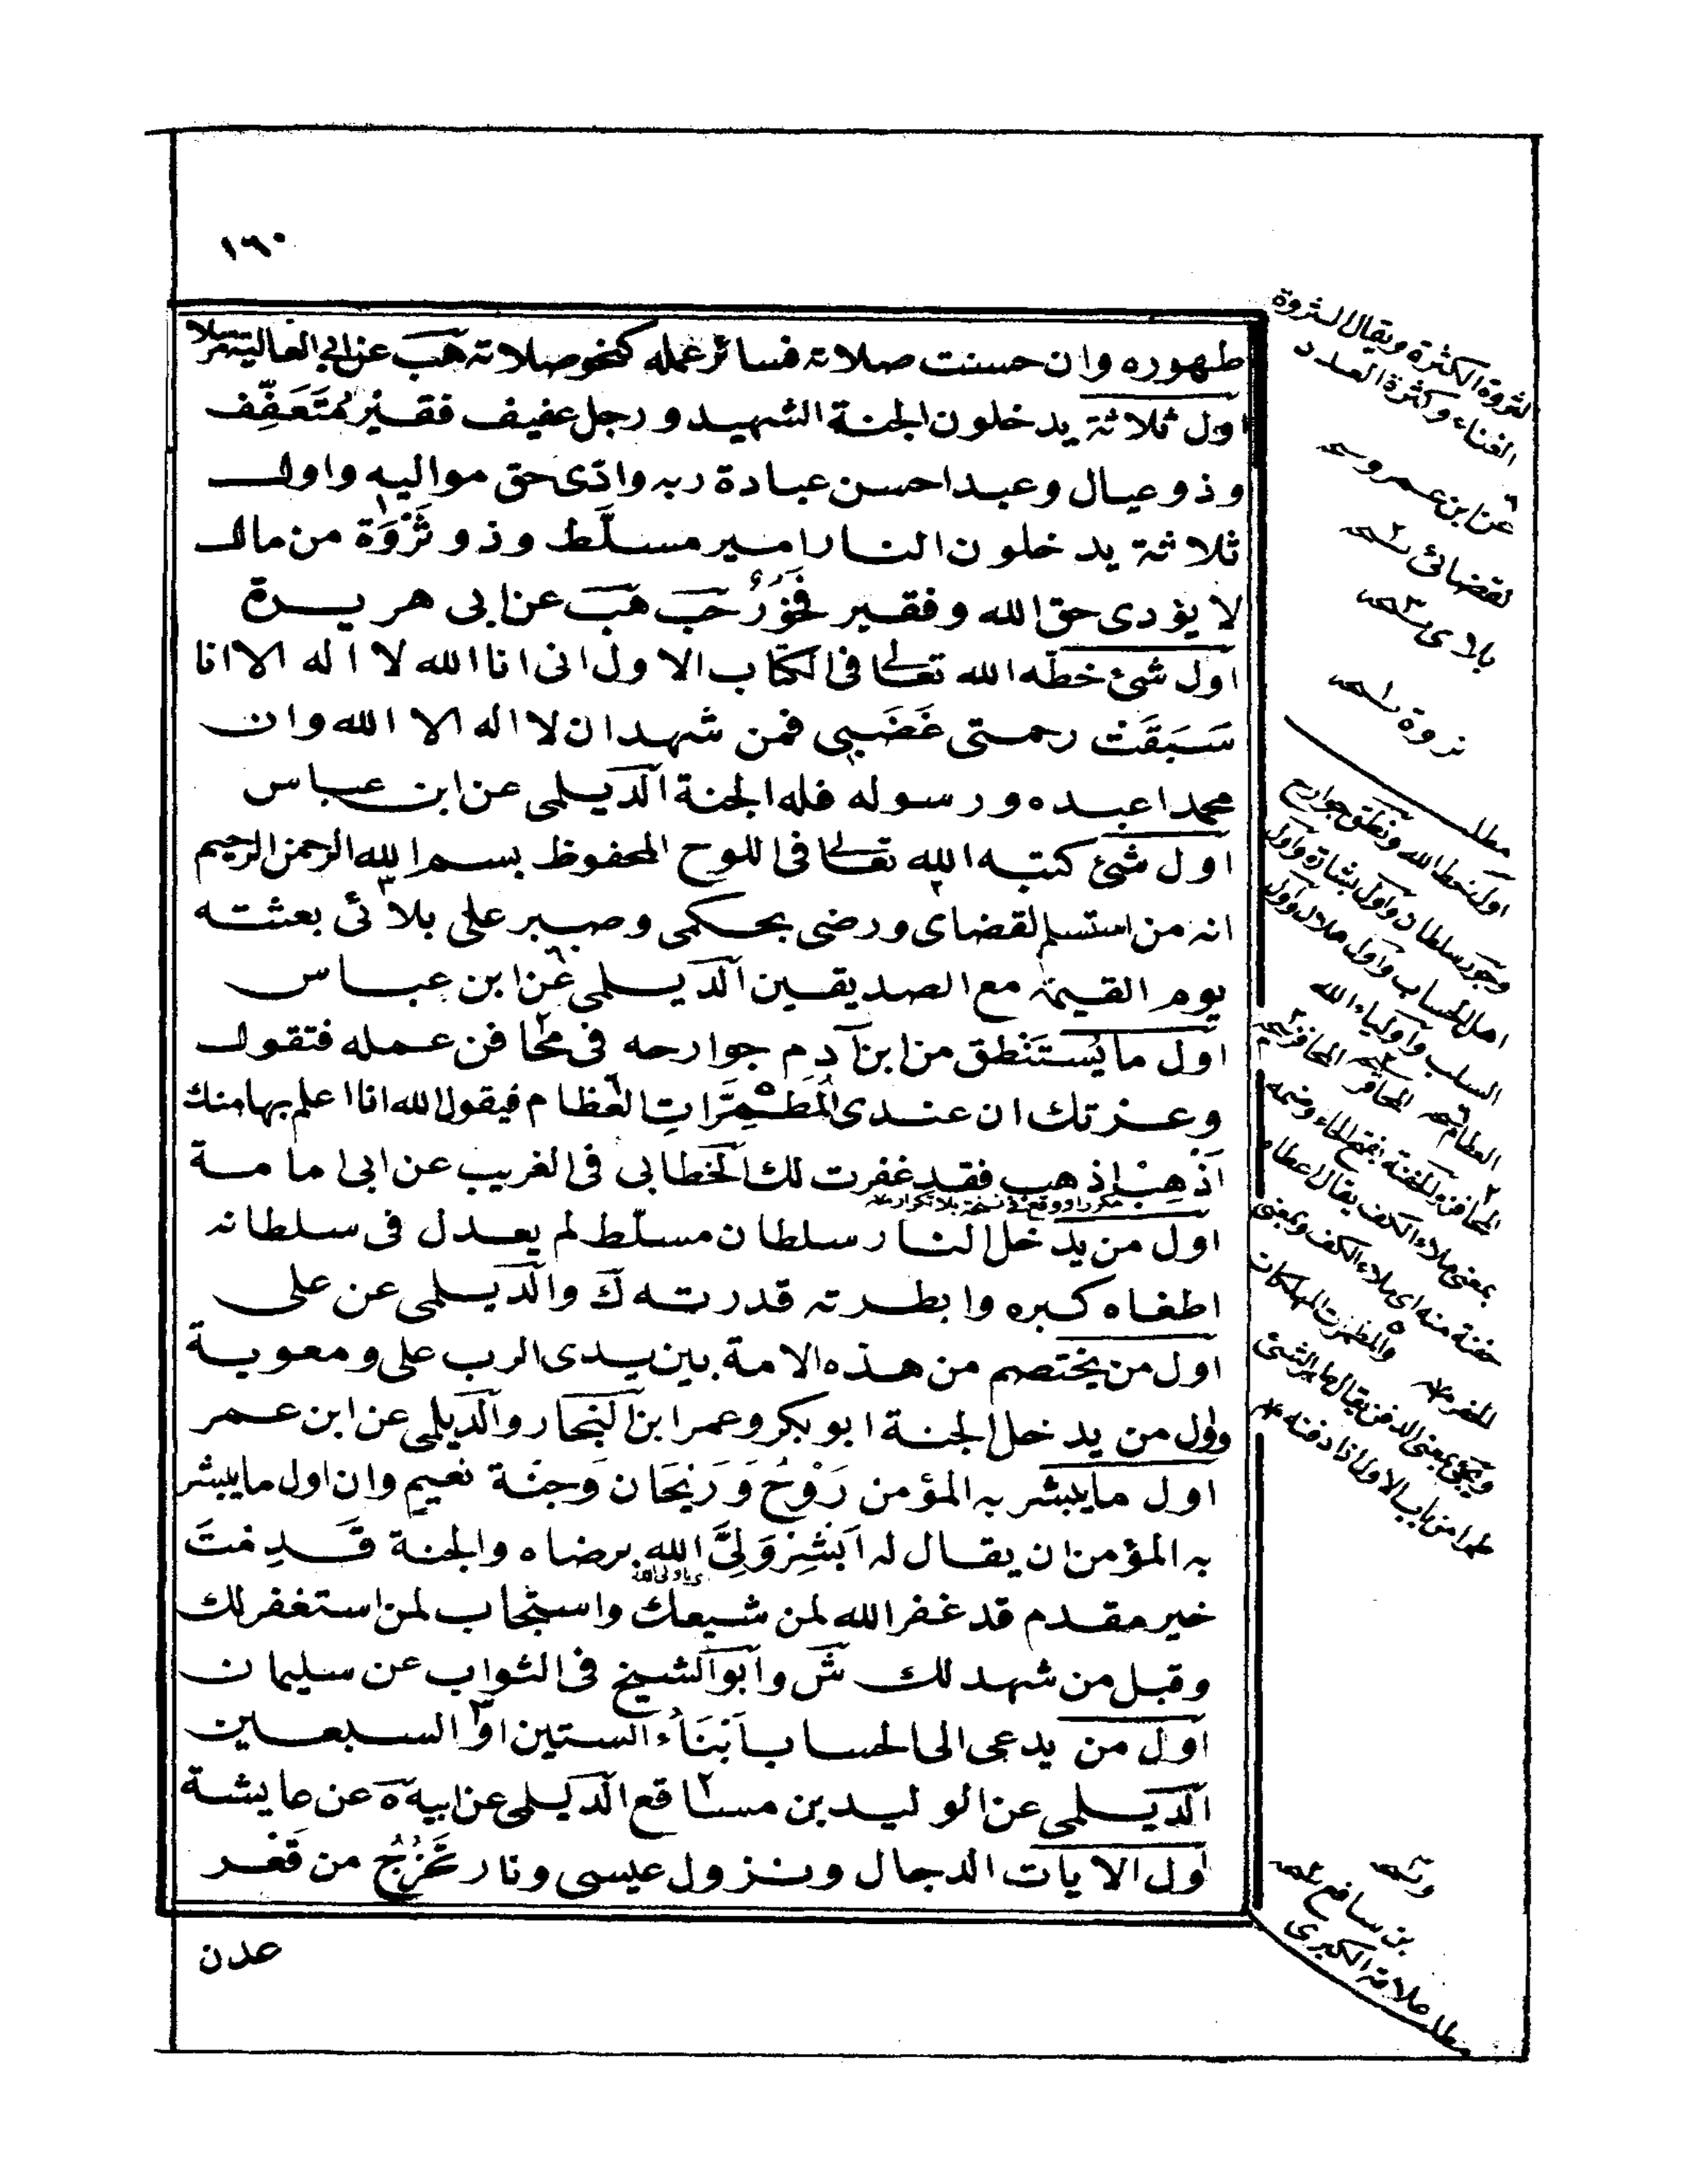 ١٦٠
طهوره وان حسنت صلاته فسائر عمله كنحو صلاته هب عن ابى العالية مرسلا
اول ثلاثة يدخلون الجنة الشهيد ورجل عفيف فقير مُتَعَفِّف
وذو عيال وعبد احسن عبادة ربه وادّى حق مواليه واول
ثلاثة يدخلون النار امير مسلّط وذو ثَرْوَة من مال
لا يؤدى حق الله وفقير فخور حب هب عن ابى هريرة
اول شئ خطه الله تعالى فى الكتاب الاول انى انا الله لا اله الا انا
سَبَقَت رحمتى غَضَبِى فمن شهد ان لا اله الا الله وان
محمدا عبده ورسوله فله الجنة الديلمى عن ابن عباس
اول شئ كتبه الله تعالى فى اللوح المحفوظ بسم الله الرحمن الرحيم
انه من استسلم لقضاى ورضى بحكمى وصبر على بلائى بعثته
يوم القيمة مع الصديقين الديلمى عن ابن عباس
اول ما يُستَنْطق من ابن آدم جوارحه فى محافن عمله فتقول
وعزتك ان عندى المطمرات العظام فيقول الله انا اعلم بها منك
اذهب اذهب فقد غفرت لك الخطابى فى الغريب عن ابى امامة
مكررا ووقع فى نسخة بلا تكرار
اول من يدخل النار سلطان مسلّط لم يعدل فى سلطانه
اطغاه كبره وابطرته قدرته ك والديلمى عن على
اول من يختصم من هذه الامة بين يدى الرب على ومعوية
واول من يدخل الجنة ابو بكر وعمر ابن النجار والديلمى عن ابن عمر
اول ما يبشر به المؤمن رَوْحٌ وَرَيْحَان وجنّة نعيم وان اول ما يبشر
به المؤمن ان يقال له اَبْشِرْ وَلِىَّ الله برضاه والجنة قَدِمْتَ
اى يا ولى الله
خير مقدم قد غفر الله لمن شيعك واستجاب لمن استغفر لك
وقبل من شهد لك ش وابو الشيخ فى الثواب عن سليمان
اول من يدعى الى الحساب اَبْنَاء الستين او السبعين
الديلمى عن الوليد بن مسافع الديلمى عن ابيه عن عايشة
اول الايات الدجال ونزول عيسى ونار تَخْرُجُ من قَعْر
عدن
الثروة الكثرة ويقال الثروة
الغناء وكثرة العدد
عن ابن عمرو
لقضائى
بلاى
ثروة
مطلب
اول خط الله ونطق جوارح
وجور سلطان واول بشارة واول
اهل الحساب
العظام
المحافن
بمعنى ملاء الكف
حفنة منه اى ملاء الكف وبمعنى
الحفر والمطمرات المهلكات
ويجئ بمعنى الدفن يقال طمر الشئ
طمرا من باب الاول اذا دفنه
بن سافع
مطلب علامة الكبرى